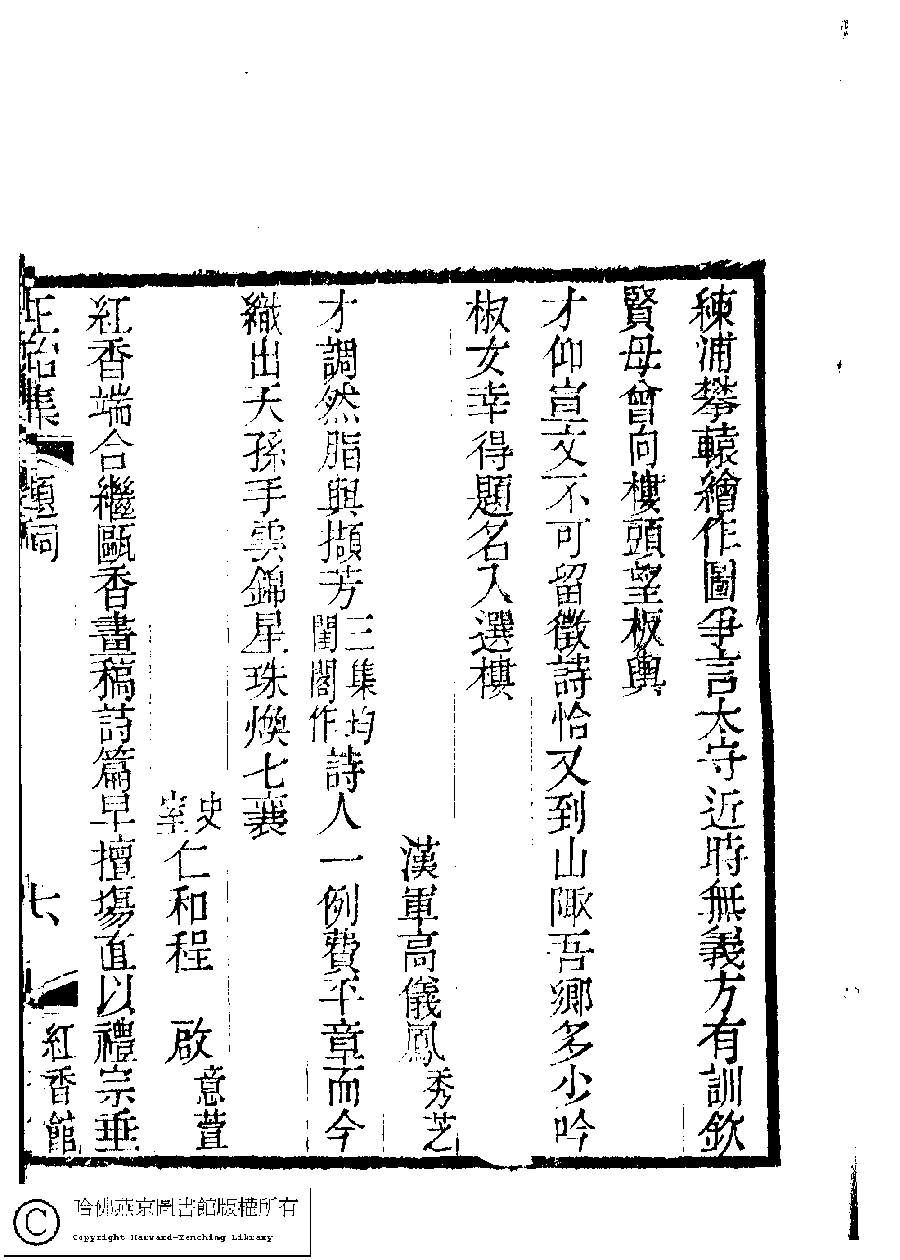 練浦攀轅繪作圖爭言太守近時無義方有訓欽
賢母曾向樓頭望板輿
才仰宣文不可留徵詩恰又到山陬吾鄉多少吟
椒女幸得題名入選樓
漢軍高儀鳳秀芝
才調然脂與擷芳三集均閨閣作詩人一例費平章而今
織出天孫手雲錦星珠煥七襄
史室仁和程 啟意萱
紅香端合繼甌香畫稿詩篇早擅場直以禮宗垂
正始集 題詞 七 紅香館
哈佛燕京圖書館版權所有
Copyright Harvard-Yenching Library